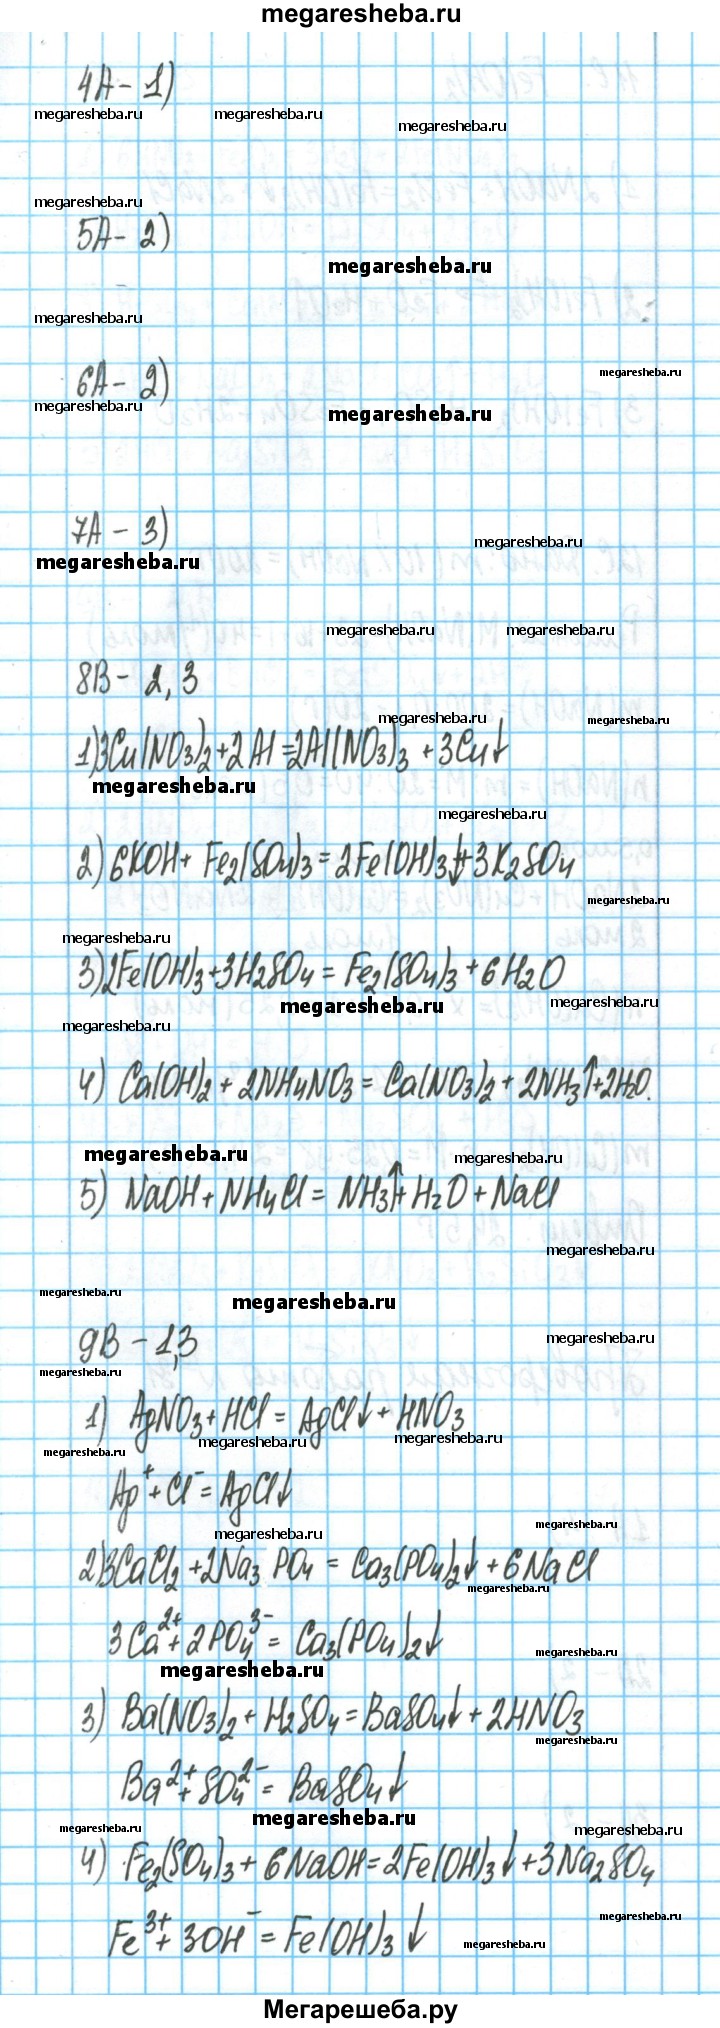 megaresheba.ru
4А - 1)
megaresheba.ru megaresheba.ru megaresheba.ru
megaresheba.ru
5А - 2)
megaresheba.ru
megaresheba.ru
6А - 2)
megaresheba.ru
megaresheba.ru megaresheba.ru
7А - 3)
megaresheba.ru
megaresheba.ru
megaresheba.ru megaresheba.ru
8В - 2, 3
megaresheba.ru megaresheba.ru
1) 3Cu(NO3)2 + 2Al = 2Al(NO3)3 + 3Cu↓
megaresheba.ru
megaresheba.ru
2) 6KOH + Fe2(SO4)3 = 2Fe(OH)3↓ + 3K2SO4
megaresheba.ru
megaresheba.ru
3) 2Fe(OH)3 + 3H2SO4 = Fe2(SO4)3 + 6H2O
megaresheba.ru megaresheba.ru
megaresheba.ru
4) Ca(OH)2 + 2NH4NO3 = Ca(NO3)2 + 2NH3↑ + 2H2O.
megaresheba.ru megaresheba.ru
5) NaOH + NH4Cl = NH3↑ + H2O + NaCl
megaresheba.ru
megaresheba.ru megaresheba.ru
9В - 1,3
megaresheba.ru
megaresheba.ru
1) AgNO3 + HCl = AgCl↓ + HNO3
megaresheba.ru megaresheba.ru megaresheba.ru
Ag⁺ + Cl⁻ = AgCl↓
megaresheba.ru megaresheba.ru
2) 3CaCl2 + 2Na3PO4 = Ca3(PO4)2↓ + 6NaCl
megaresheba.ru
3Ca²⁺ + 2PO4³⁻ = Ca3(PO4)2↓
megaresheba.ru megaresheba.ru
3) Ba(NO3)2 + H2SO4 = BaSO4↓ + 2HNO3
megaresheba.ru
Ba²⁺ + SO4²⁻ = BaSO4↓
megaresheba.ru megaresheba.ru megaresheba.ru
4) Fe2(SO4)3 + 6NaOH = 2Fe(OH)3↓ + 3Na2SO4
megaresheba.ru
Fe³⁺ + 3OH⁻ = Fe(OH)3↓
megaresheba.ru
Мегарешеба.ру